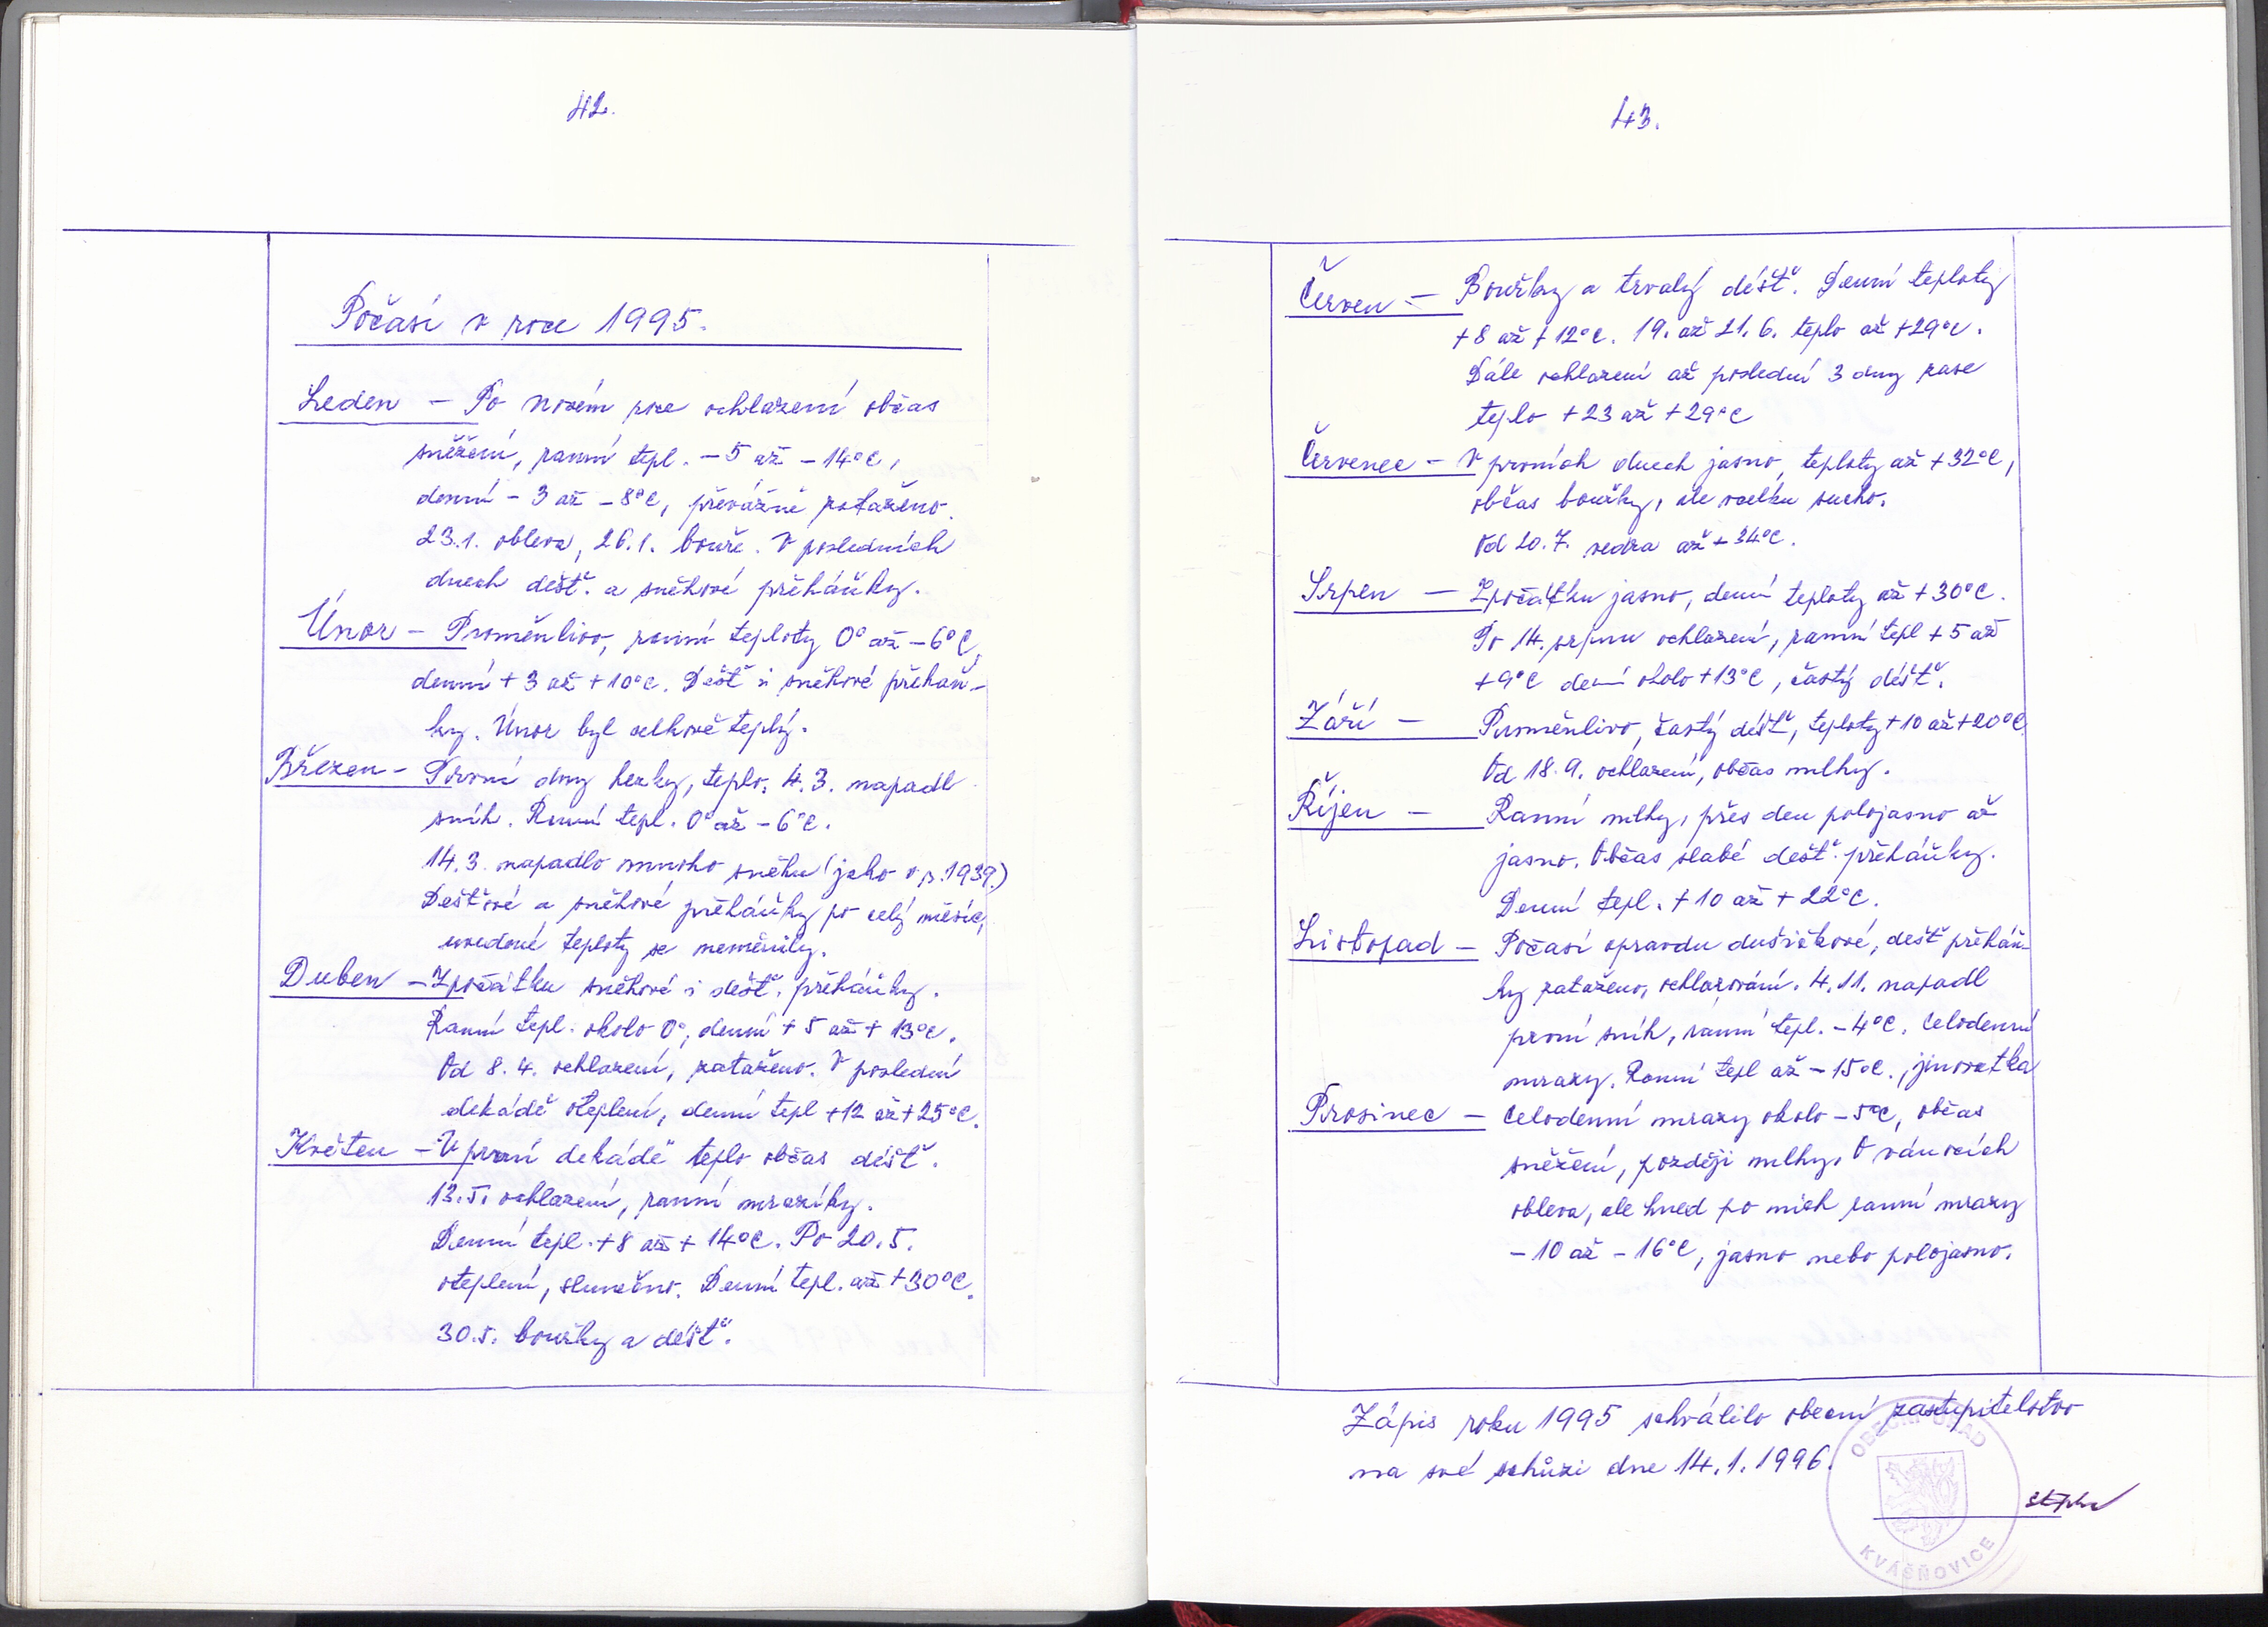 42.
Počasí v roce 1995.
Leden – Po Novém roce ochlazení občas
sněžení, ranní tepl. – 5 až – 14°C,
denní – 3 až – 8°C, převážně zataženo.
23.1. obleva, 26.1. bouře. V posledních
dnech dešť. a sněhové přeháňky.
Únor – Proměnlivo, ranní teploty 0° až – 6°C,
denní + 3 až + 10°C. Déšť i sněhové přeháň-
ky. Únor byl celkově teplý.
Březen – První dny hezky, teplo. 4.3. napadl
sníh. Ranní tepl. 0° až – 6°C.
14.3. napadlo mnoho sněhu (jako v r. 1939.)
Dešťové a sněhové přeháňky po celý měsíc,
uvedené teploty se neměnily.
Duben – Zpočátku sněhové i dešť. přeháňky.
Ranní tepl. okolo 0°, denní + 5 až + 13°C.
Od 8. 4. ochlazení, zataženo. V poslední
dekádě oteplení, denní tepl +12 až +25°C.
Květen – V první dekádě teplo občas déšť.
13.5. ochlazení, ranní mrazíky.
Denní tepl. +8 až + 14°C. Po 20.5.
oteplení, slunečno. Denní tepl. až +30°C.
30.5. bouřky a déšť.
43.
Červen – Bouřky a trvalý déšť. Denní teploty
+ 8 až + 12°C. 19. až 21. 6. teplo až +29°C.
Dále ochlazení až poslední 3 dny zase
teplo +23 až +29°C
Červenec – V prvních dnech jasno, teploty až +32°C,
občas bouřky, ale vcelku sucho.
Od 20. 7. vedra až + 34°C.
Srpen – Zpočátku jasno, denní teploty až +30°C.
Po 14. srpnu ochlazení, ranní tepl + 5 až
+9°C dení okolo +13°C, častý déšť.
Září – Proměnlivo, častý déšť, teploty +10 až +20°C
Od 18. 9. ochlazení, občas mlhy.
Říjen – Ranní mlhy, přes den polojasno až
jasno. Občas slabé dešť. přeháňky.
Denní tepl. + 10 až + 22°C.
Listopad – Počasí opravdu dušičkové, dešť přeháň-
ky zataženo, ochlazování. 4. 11. napadl
první sníh, ranní tepl. – 4°C. Celodenní
mrazy. Ranní tepl až – 15°C., jinovatka
Prosinec – Celodenní mrazy okolo – 5°C, občas
sněžení, později mlhy. O vánocích
obleva, ale hned po nich ranní mrazy
– 10 až – 16°C, jasno nebo polojasno.
Zápis roku 1995 schválilo obecní zastupitelstvo
na své schůzi dne 14. 1. 1996.
OBECNÍ ÚŘAD
KVÁŠŇOVICE